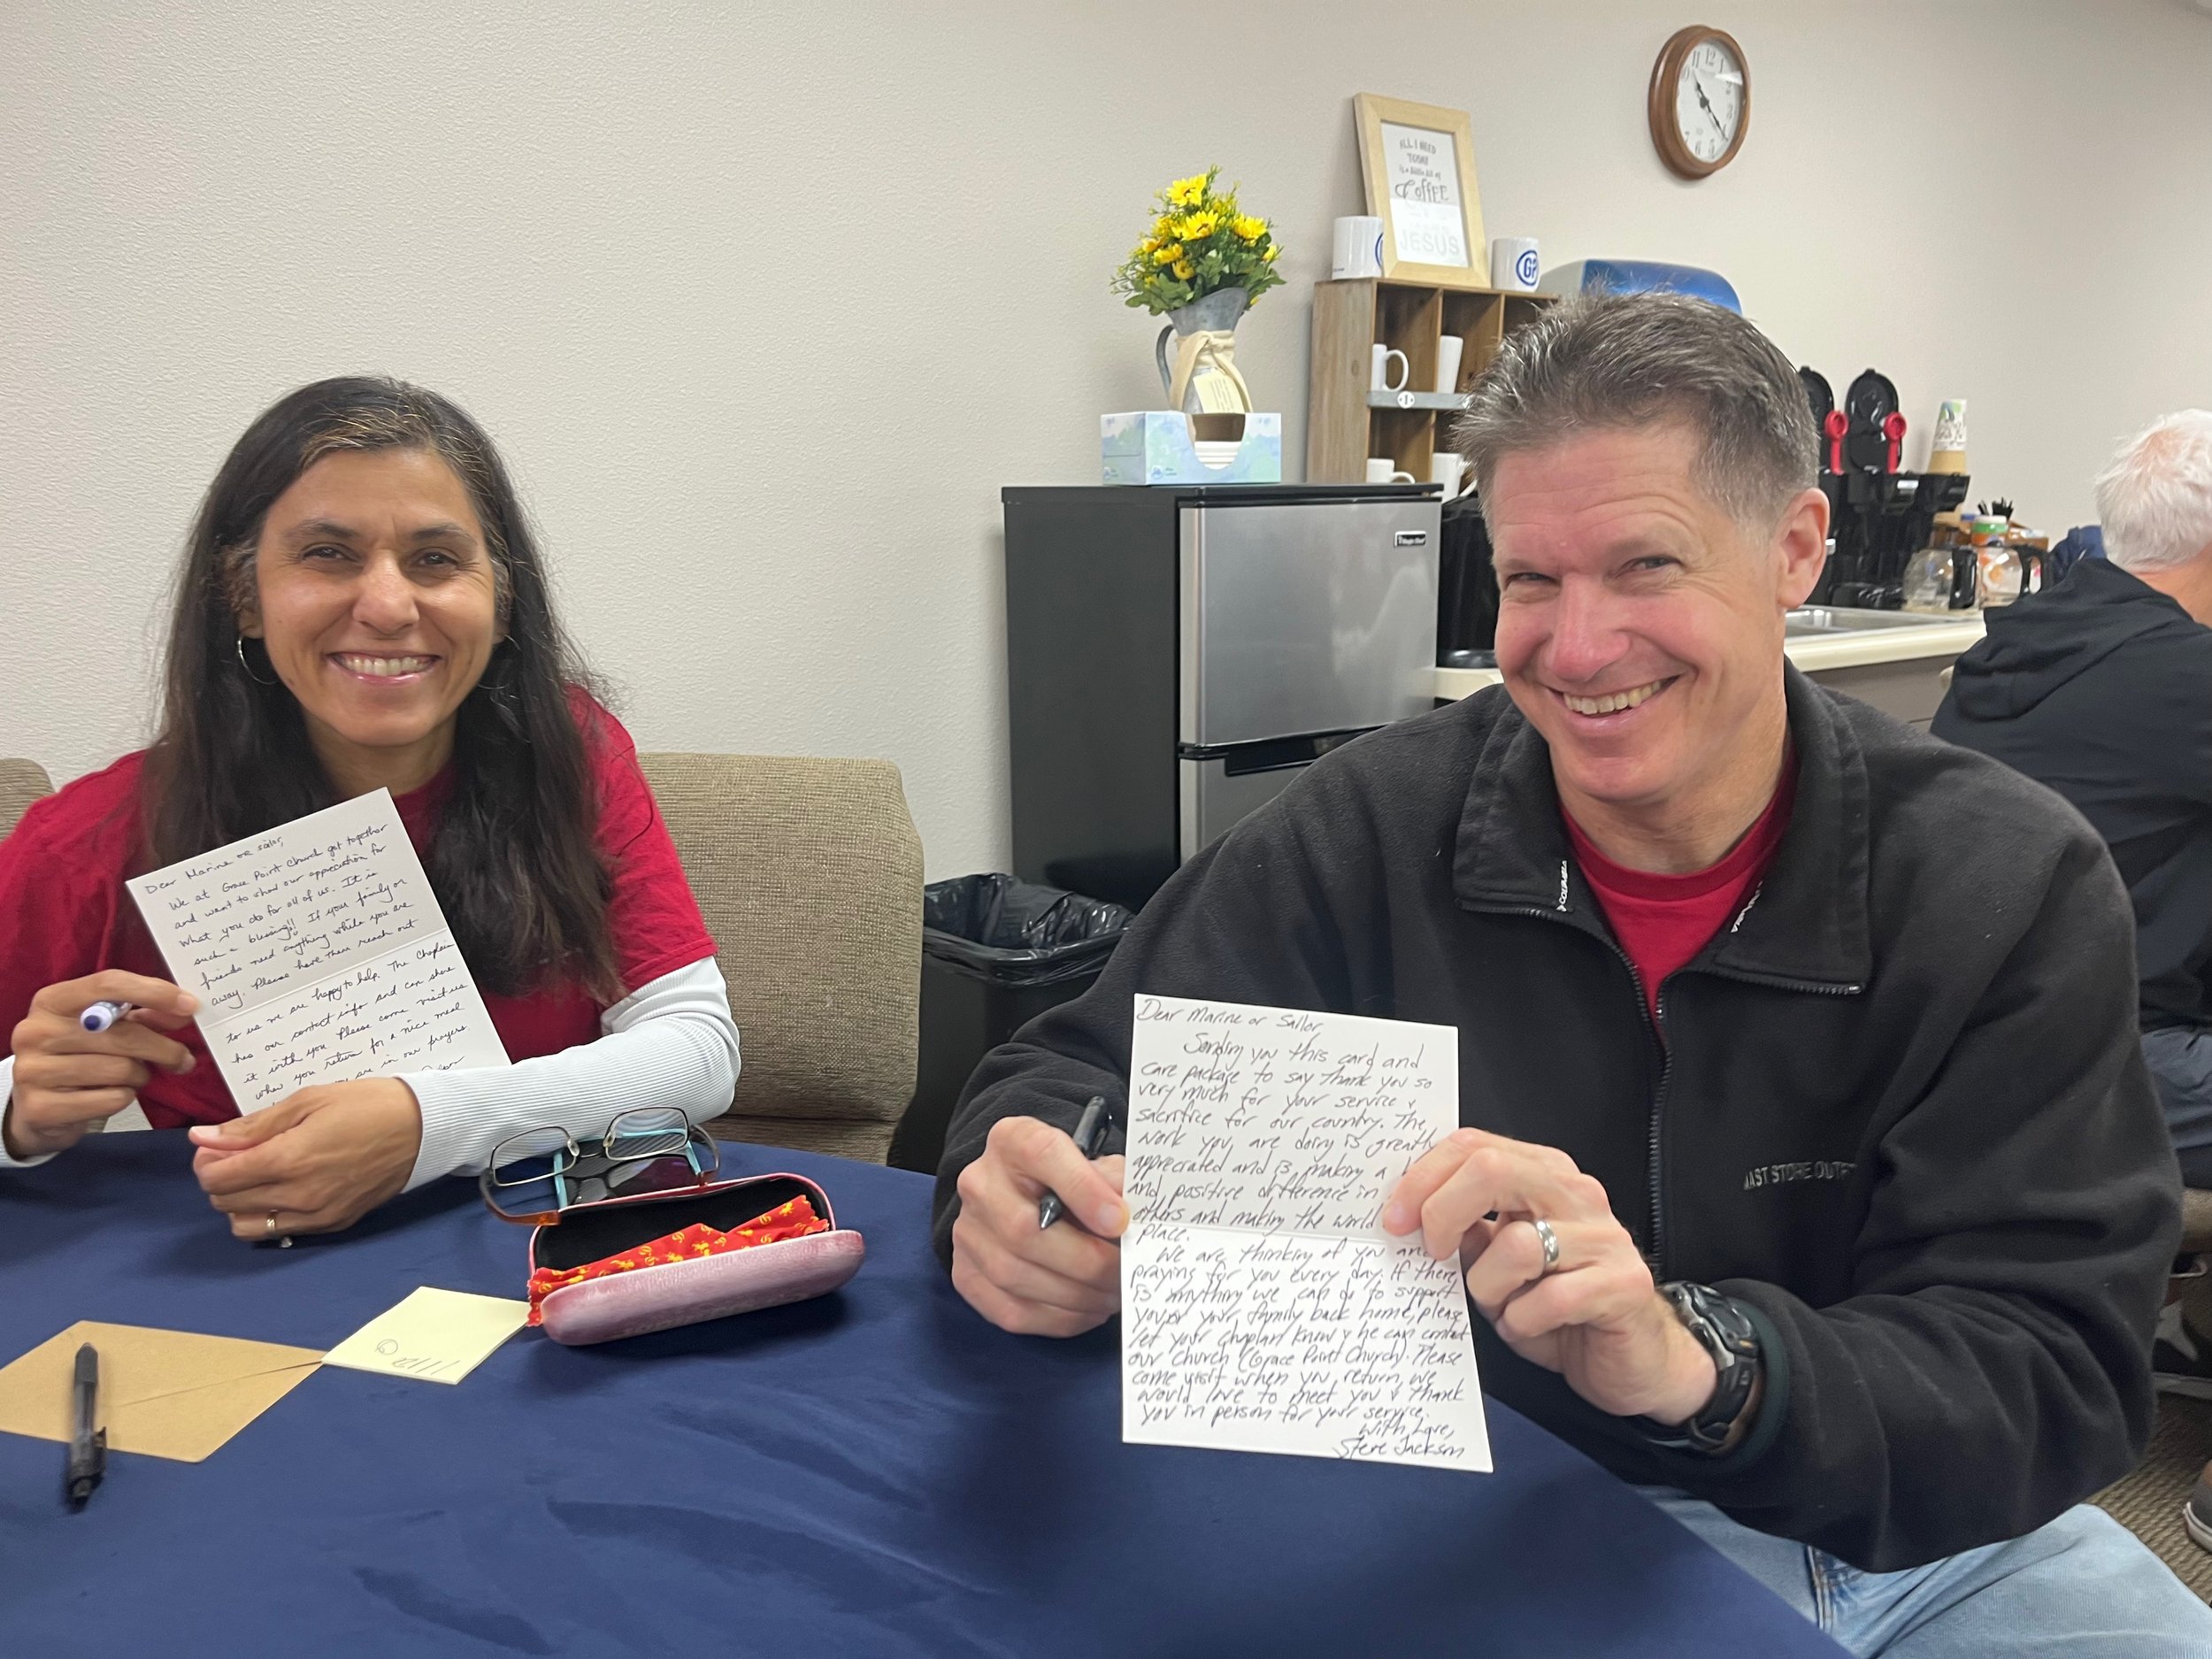 Dear Marine or Sailor,
We at Grace Point Church got together
and want to show our appreciation for
what you do for all of us. It is
such a blessing!! If your family or
friends need anything while you are
away. Please have them reach out
to us we are happy to help. The Chaplain
has our contact info and can share
it with you. Please come visit us
when you return for a nice meal
you are in our prayers
Dear Marine or Sailor,
Sending you this card and
care package to say thank you so
very much for your service &
sacrifice for our country. The
work you are doing is greatly
appreciated and is making a
and positive difference in
others and making the world
place.
We are thinking of you and
praying for you every day. If there
is anything we can do to support
you or your family back home, please
let your chaplain know & he can contact
our church (Grace Point Church). Please
come visit when you return, we
would love to meet you & thank
you in person for your service.
With Love,
Steve Jackson
ALL I NEED
TODAY
is a little bit of
COFFEE
JESUS
GP
11 12 1
2
3
7 6
COLUMBIA
MAST STORE OUTF
Magic Chef